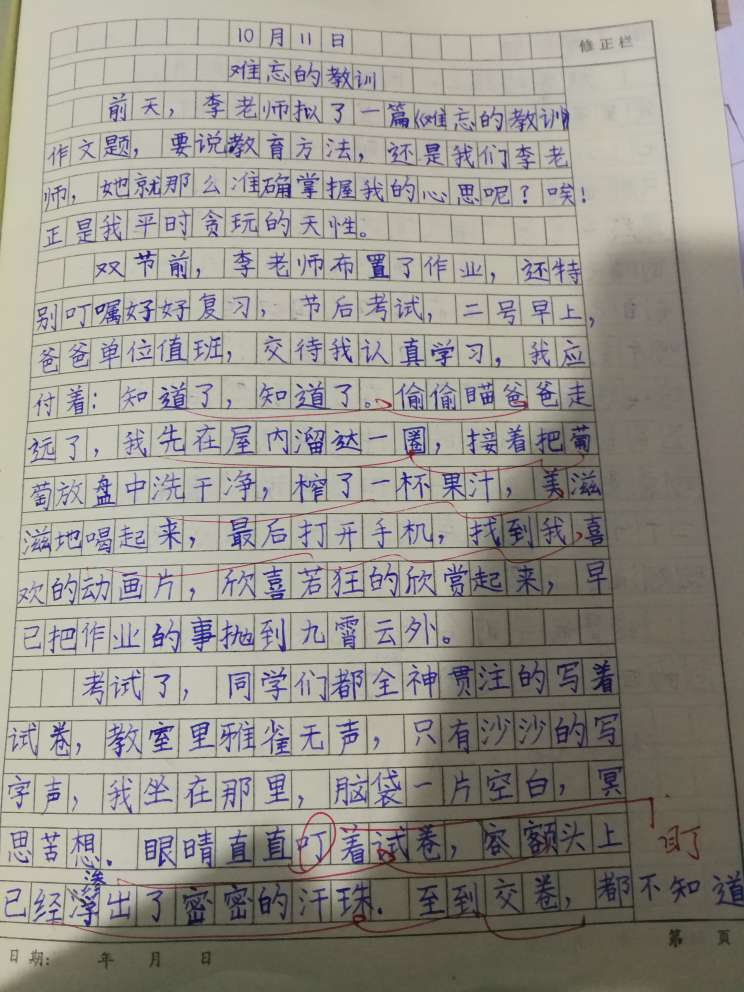 10月11日
修正栏
难忘的教训
前天，李老师拟了一篇《难忘的教训》
作文题，要说教育方法，还是我们李老
师，她就那么准确掌握我的心思呢？唉！
正是我平时贪玩的天性。
双节前，李老师布置了作业，还特
别叮嘱好好复习，节后考试，二号早上，
爸爸单位值班，交待我认真学习，我应
付着：知道了，知道了。偷偷瞄爸爸走
远了，我先在屋内溜达一圈，接着把葡
萄放盘中洗干净，榨了一杯果汁，美滋
滋地喝起来，最后打开手机，找到我喜
欢的动画片，欣喜若狂的欣赏起来，早
已把作业的事抛到九霄云外。
考试了，同学们都全神贯注的写着
试卷，教室里雅雀无声，只有沙沙的写
字声，我坐在那里，脑袋一片空白，冥
思苦想．眼睛直直叮着试卷，容额头上
盯
渗
已经出了密密的汗珠．至到交卷，都不知道
第 页
日期： 年 月 日